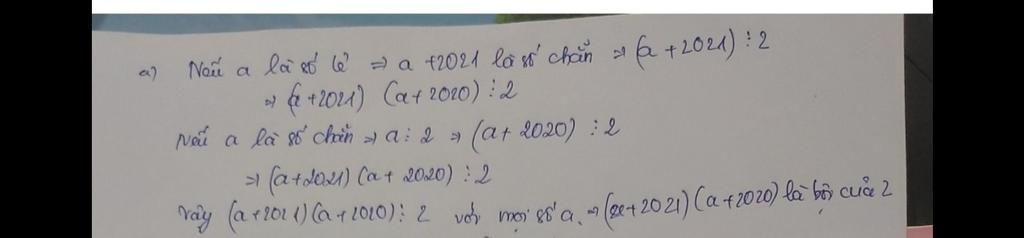 a) Nếu a là số lẻ ⇒ a + 2021 là số chẵn ⇒ (a + 2021) ⋮ 2
⇒ (a + 2021) (a + 2020) ⋮ 2
Nếu a là số chẵn ⇒ a ⋮ 2 ⇒ (a + 2020) ⋮ 2
⇒ (a + 2021) (a + 2020) ⋮ 2
Vậy (a + 2021) (a + 2020) ⋮ 2 với mọi số a. ⇒ (a + 2021) (a + 2020) là bội của 2